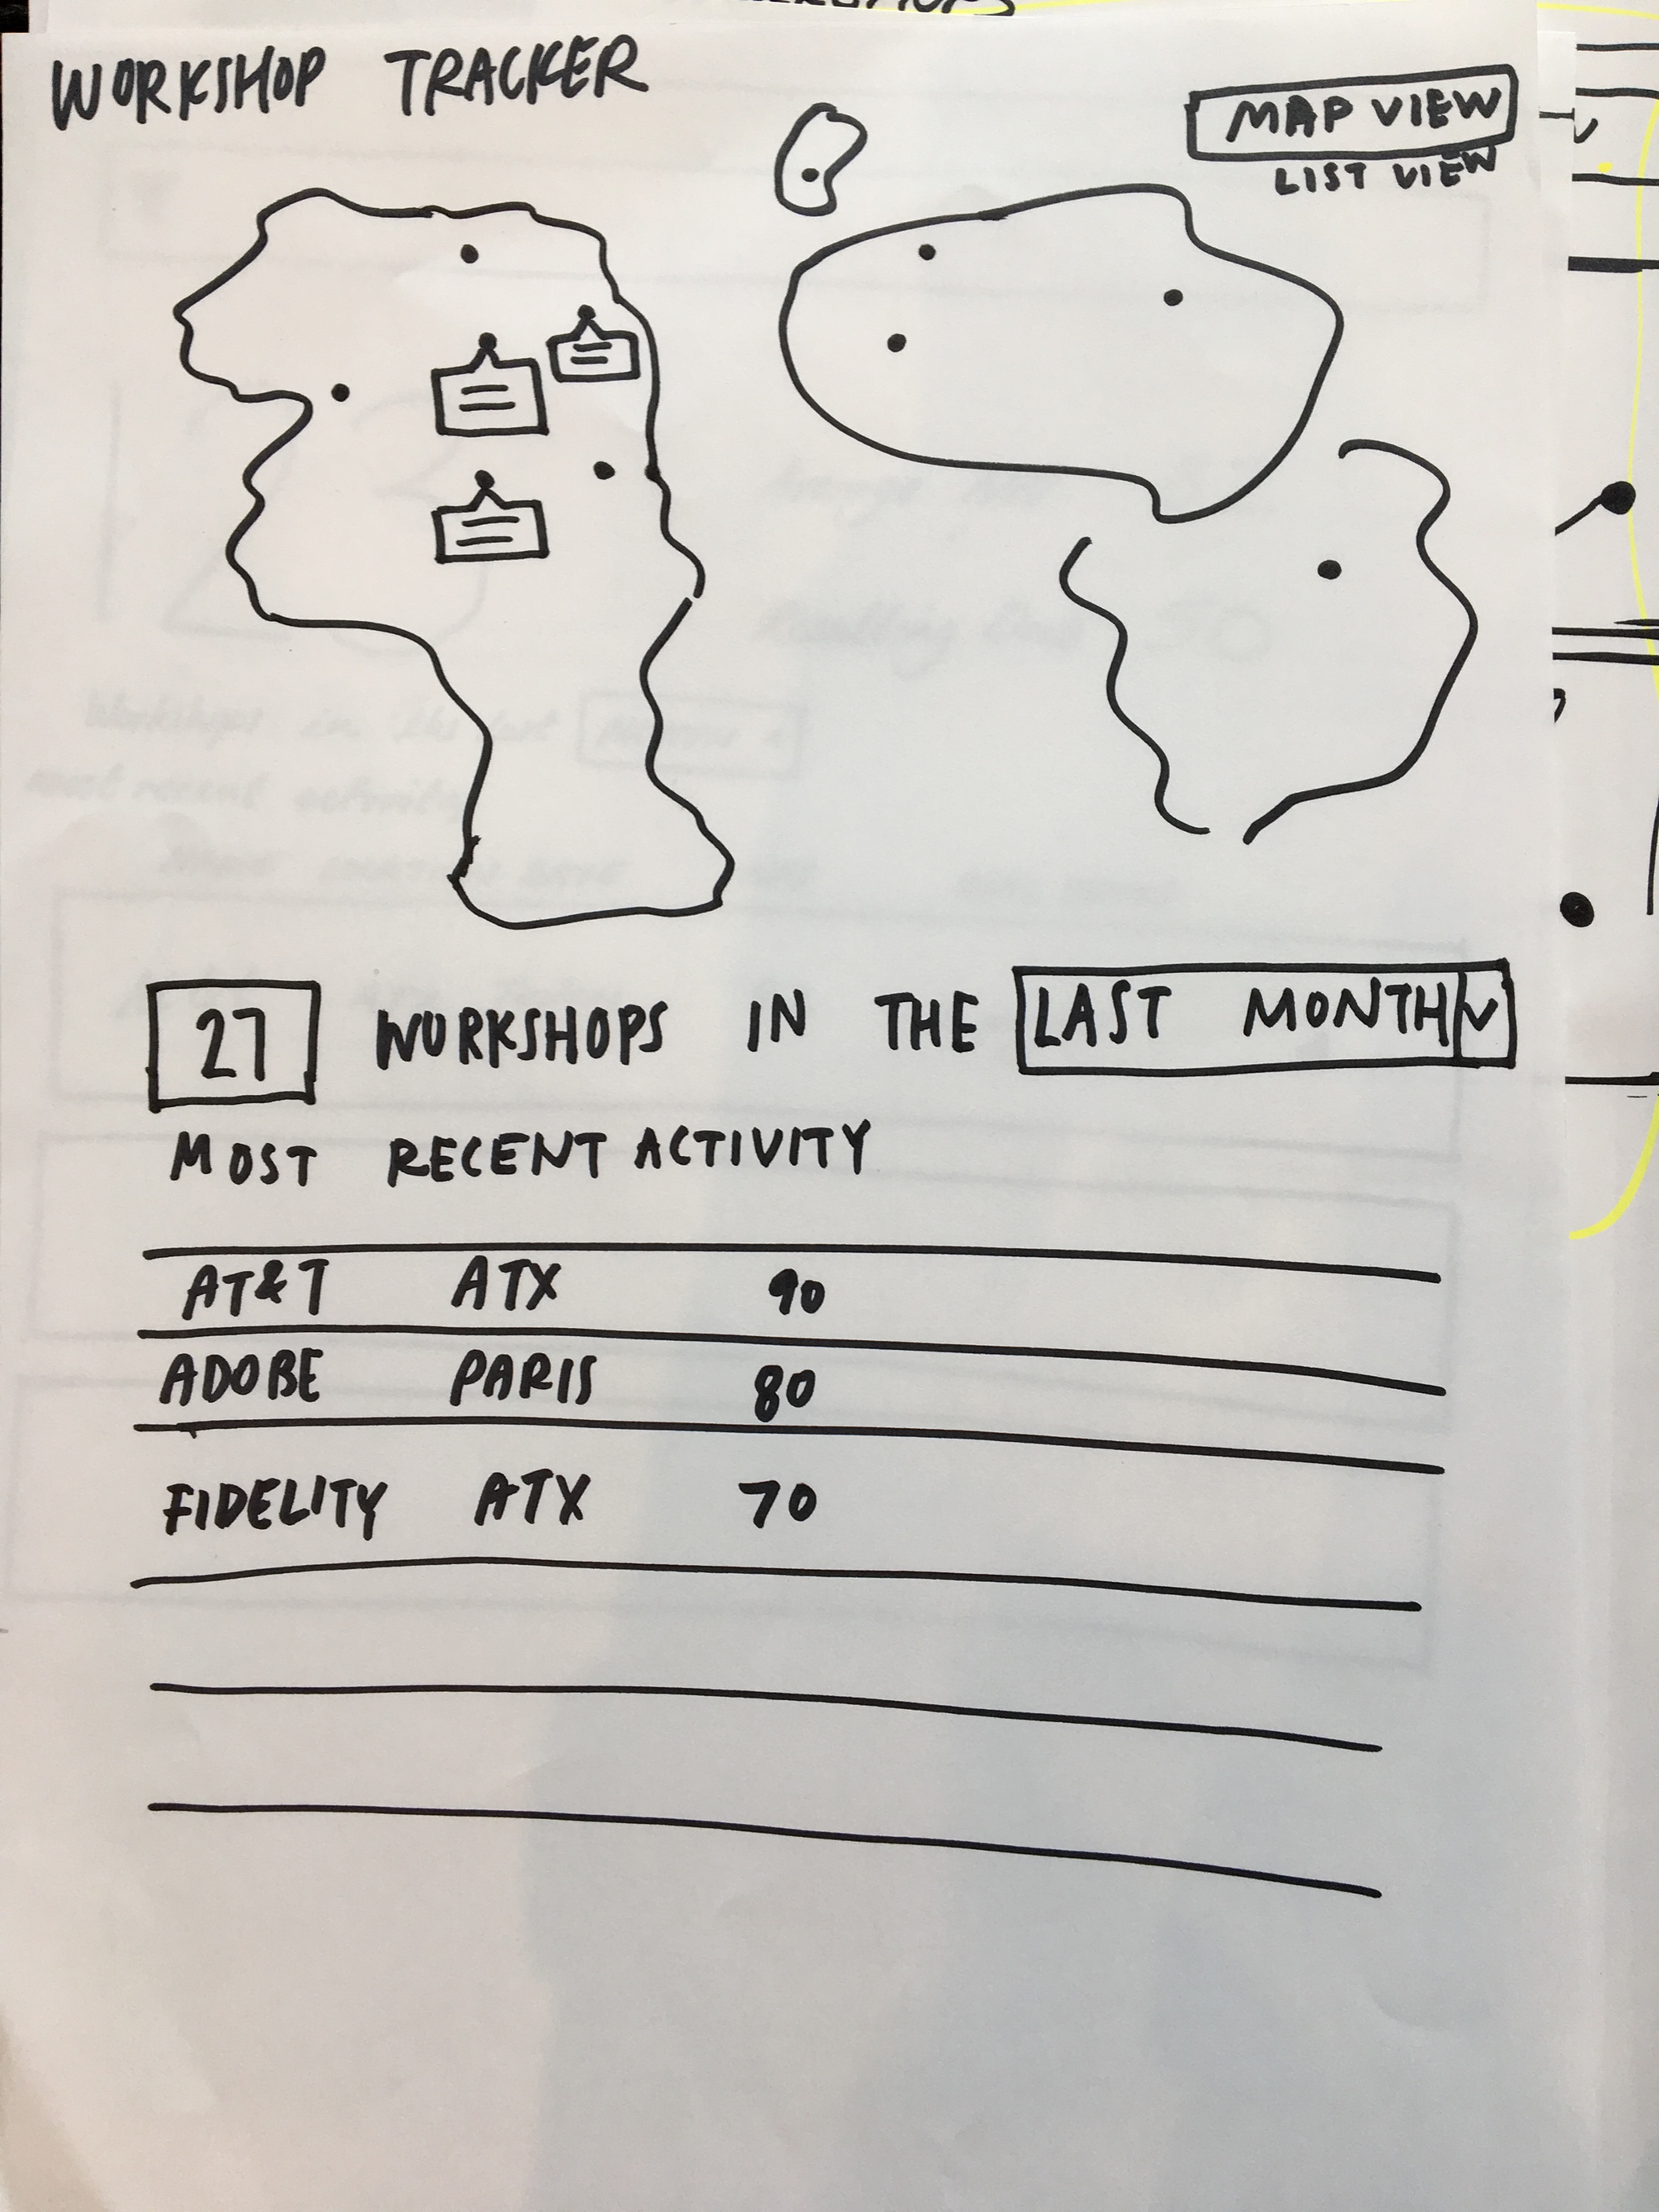 WORKSHOP TRACKER
MAP VIEW
LIST VIEW
27 WORKSHOPS IN THE LAST MONTH
MOST RECENT ACTIVITY
AT&T ATX 90
ADOBE PARIS 80
FIDELITY ATX 70